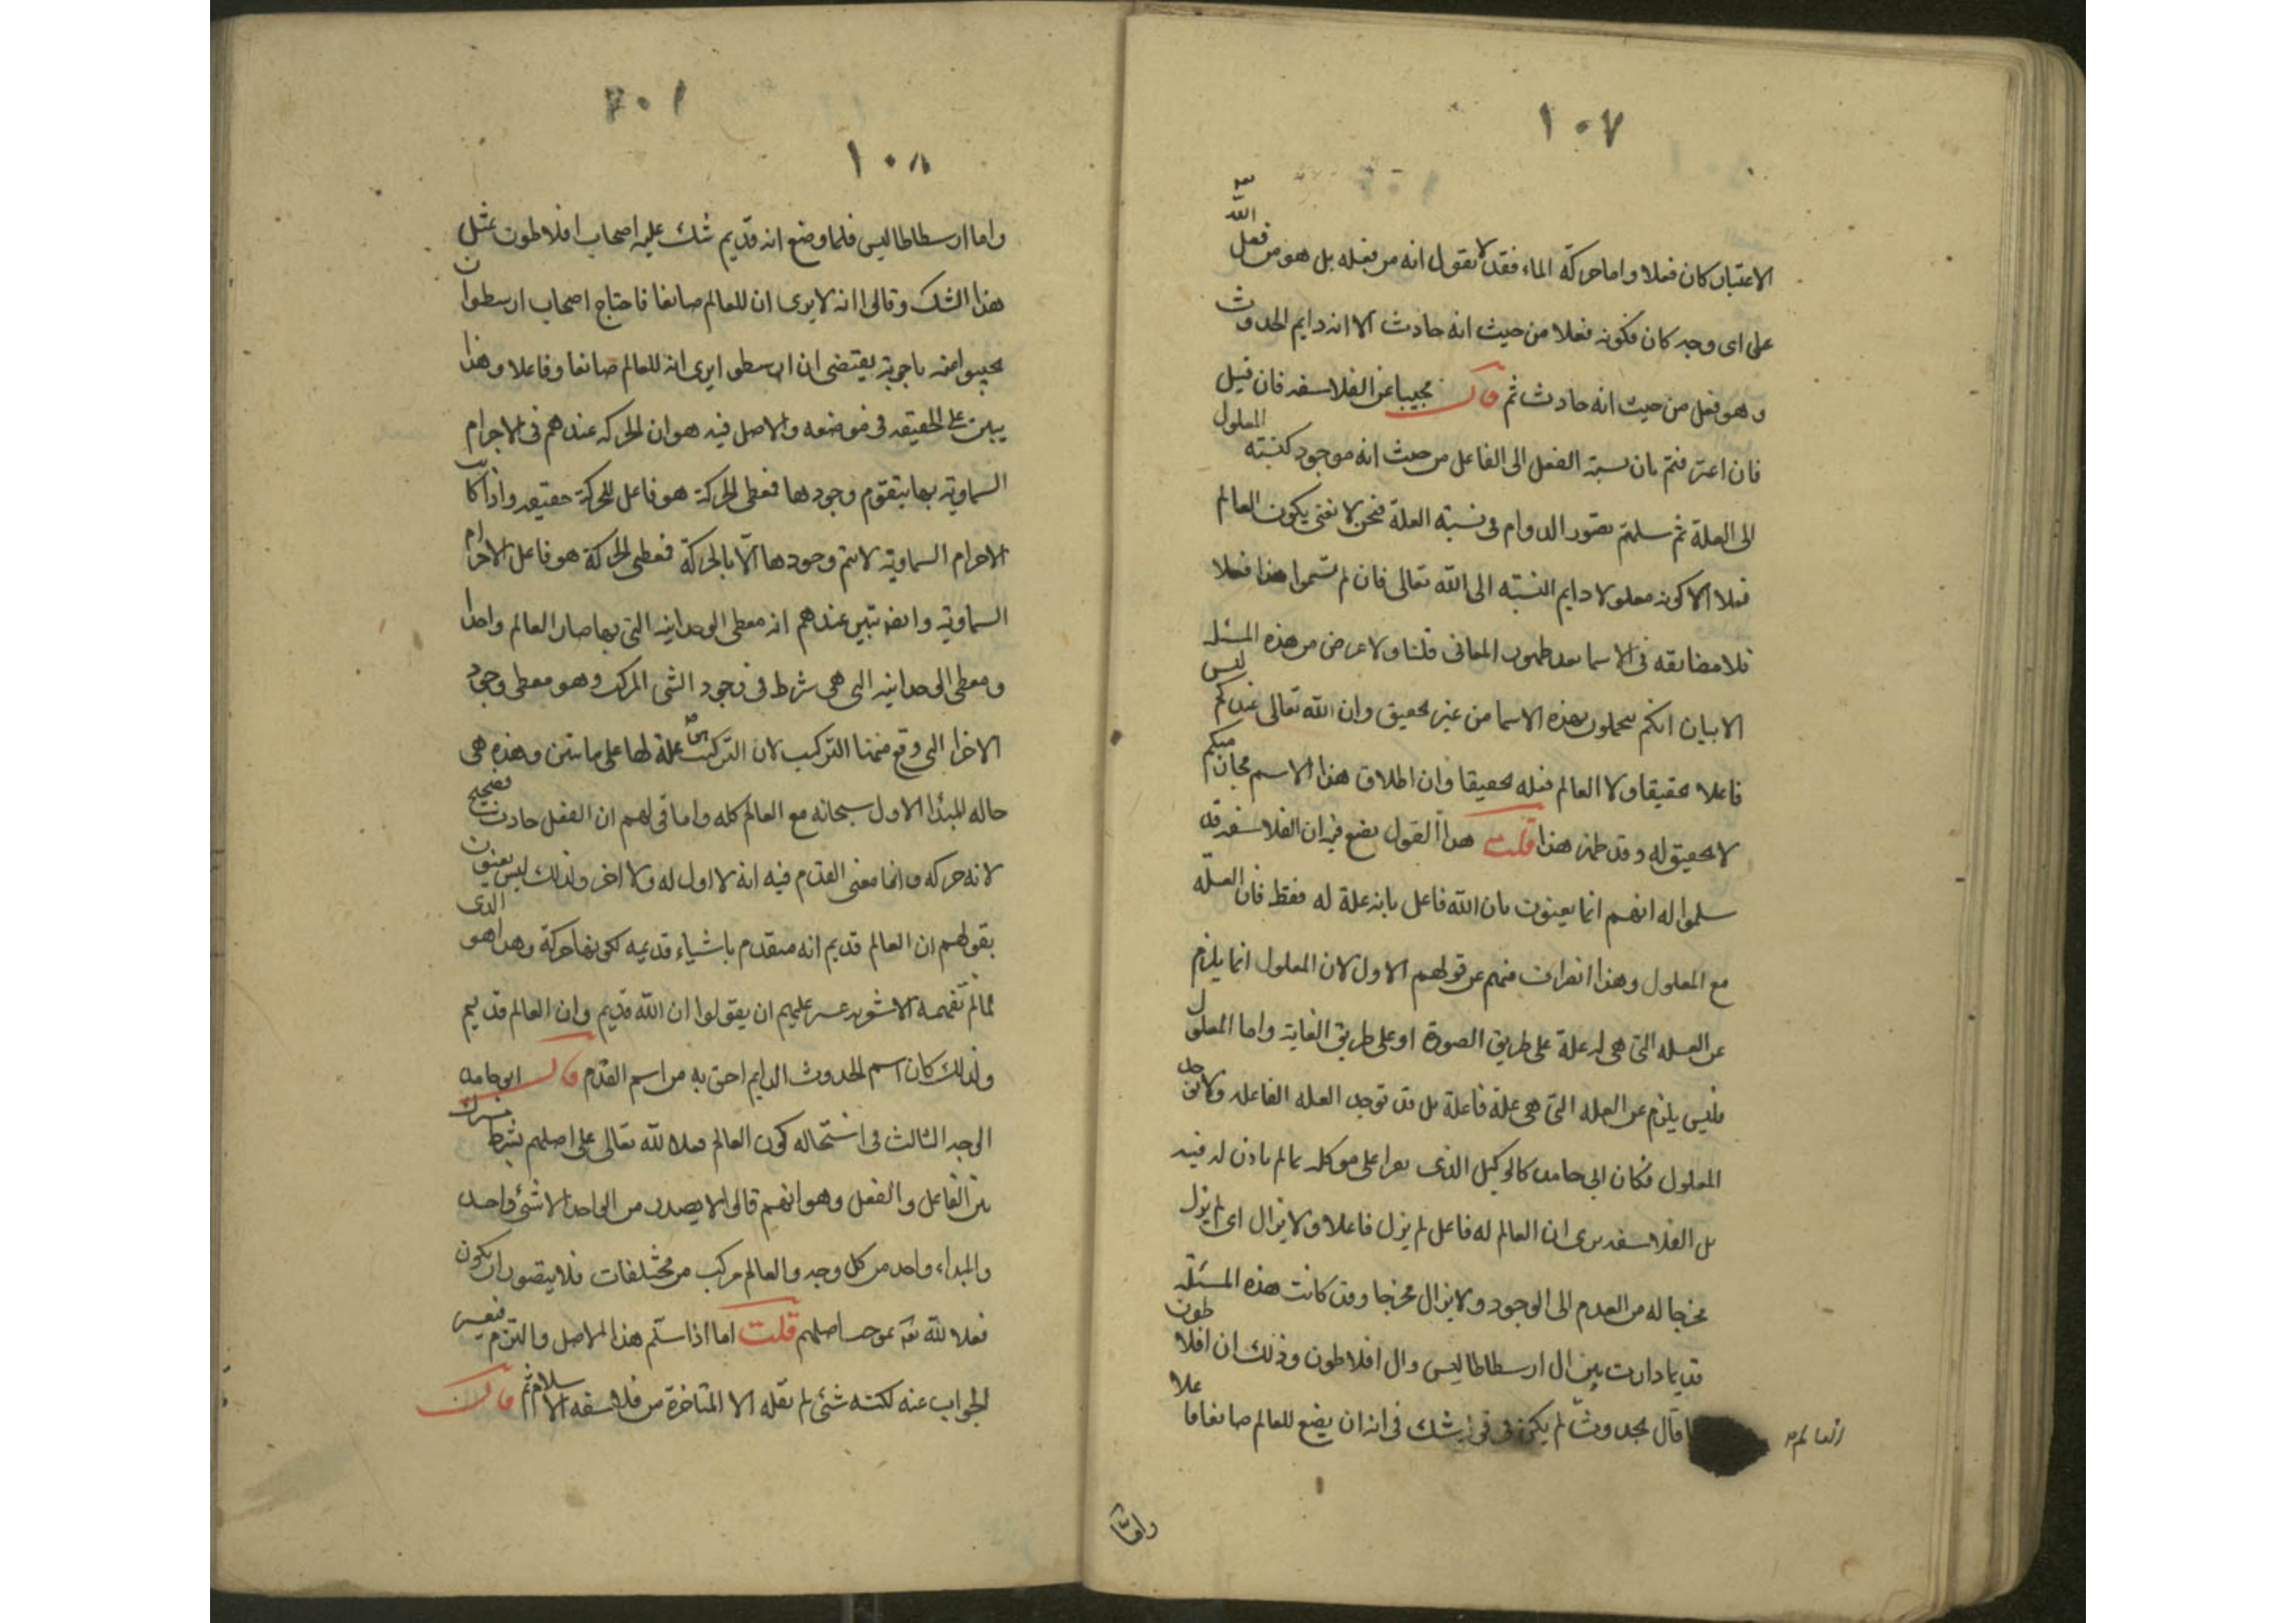 ١٠٧
الاعتبار كان فعلا واما حركة الماء فقد لا نقول انه من فعله بل هو من فعل الله
على اى وجه كان فكونه فعلا من حيث انه حادث الا انه دايم الحدوث
وهو فعل من حيث انه حادث ثم قال مجيبا عن الفلاسفه فان قيل
فان اعترفتم بان نسبة الفعل الى الفاعل من حيث انه موجود كنسبته المعلول
الى العلة ثم سلمتم تصور الدوام فى نسبة العلة فنحن لا نعنى بكون العالم
فعلا الا كونه معلولا دايم النسبة الى الله تعالى فان لم تسموا هذا فعلا
فلا مضايقه فى الاسما بعد ظهور المعانى قلنا ولا غرض من هذه المسئله
الا بيان انكم تتجملون بهذه الاسما من غير تحقيق وان الله تعالى عندكم ليس
فاعلا تحقيقا ولا العالم فعله تحقيقا وان اطلاق هذا الاسم مجاز منكم
لا تحقيق له وقد ظهر هذا قلت هذا القول يضع فيه ان الفلاسفه قد
سلموا له انهم انما يعينون بان الله فاعل بانه علة له فقط فان العلّه
مع المعلول وهذا انصراف منهم عن قولهم الاول لان المعلول انما يلزم
عن العله التى هى له علة على طريق الصورة او على طريق الغاية واما المعلول
فليس يلزم عن العله التى هى علة فاعلة بل قد توجد العله الفاعله ولا يوجد
المعلول فكان ابى حامد كالوكيل الذى يقرا على موكله بما لم ياذن له فيه
بل الفلاسفه يرى ان العالم له فاعل لم يزل فاعلا ولا يزال اى لم يزل
مخرجا له من العدم الى الوجود ولا يزال مخرجا وقد كانت هذه المسئله
قديما دارت بين ال ارسطاطاليس وال افلاطون وذلك ان افلاطون
لما قال بحدوث لم يكن فى قوله شك فى انه ان يضع للعالم صانعا فاعلا
العالم
واما
١٠٨
واما ارسطاطاليس فلما وضع انه قديم شك عليه اصحاب افلاطون بمثل
هذا الشك وقالوا انه لا يرى ان للعالم صانعا فاحتاج اصحاب ارسطو ان
يجيبوا عنه باجوبة يقتضى ان ارسطو يرى ان للعالم صانعا وفاعلا وهذا
يبين على الحقيقه فى موضعه والاصل فيه هو ان الحركه عندهم فى الاجرام
السماوية بها يتقوم وجودها فمعطى الحركة هو فاعل للحركة حقيقه واذا كانت
الاجرام السماوية لا يتم وجودها الا بالحركة فمعطى الحركة هو فاعل الاجرام
السماوية وايضا تبين عندهم انه معطى الوحدانية التى بها صار العالم واحدا
ومعطى الوحدانيه التى هى شرط فى وجود الشى المركب وهو معطى وجود
الاجزا التى وقع منها التركيب لان التركيب علة لها على ما تبين وهذه هى
حاله المبدا الاول سبحانه مع العالم كله واما قولهم ان الفعل حادث فصحيح
لانه حركه وانما معنى القدم فيه انه لا اول له ولا اخر ولذلك ليس يعنون
بقولهم ان العالم قديم انه متقدم باشياء قديمه لكونها حركة وهذا هو الذى
لما لم تفهمه الاشعريه عسر عليهم ان يقولوا ان الله قديم وان العالم قديم
ولذلك كان اسم الحدوث الدايم احق به من اسم القدم قال ابو حامد
الوجه الثالث فى استحاله كون العالم فعلا لله تعالى على اصلهم بشرط مشترك
بين الفاعل والفعل وهو انهم قالوا لا يصدر من الواحد الا شئ واحد
والمبداء واحد من كل وجه والعالم مركب من مختلفات فلا يتصور ان يكون
فعلا لله تعه بموجب اصلهم قلت اما اذا سلّم هذا الاصل والتزم فيعسر
الجواب عنه لكنه شئ لم يقله الا المتاخرة من فلاسفه الاسلام ثم قال